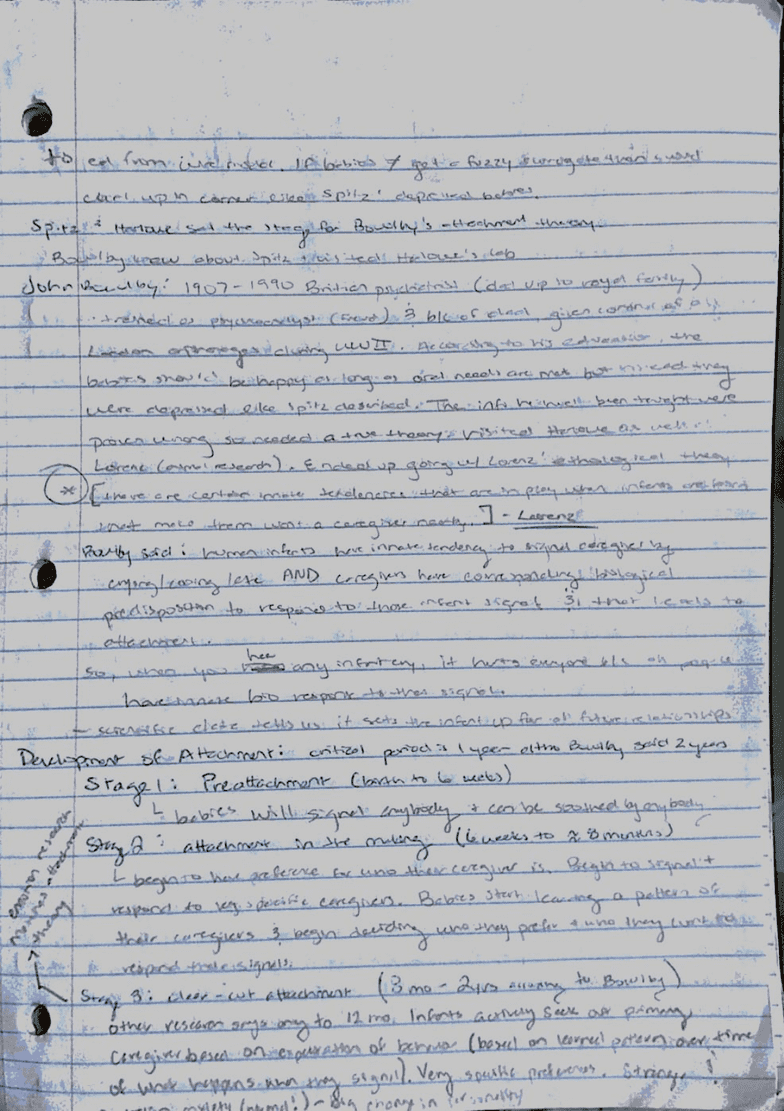 to eat from wire mother. If babies ≠ get a fuzzy surrogate then would
curl up in corner like Spitz' deprived babies.
Spitz & Harlowe set the stage for Bowlby's attachment theory.
Bowlby knew about Spitz + visited Harlowe's lab
John Bowlby: 1907-1990 British psychiatrist (dad up to royal family)
trained as psychoanalyst (Freud) & b/c of dad, given control of all
London orphanages during WWII. According to his education, the
babies should be happy as long as oral needs are met but instead they
were depressed like Spitz described. The info he'd been taught were
proven wrong so needed a true theory. Visited Harlowe as well
Lorenz (animal research). Ended up going w/ Lorenz' ethological theory
* [there are certain innate tendencies that are in play when infants are born
that make them want a caregiver nearby.] - Lorenz
Bowlby said: human infants have innate tendency to signal caregiver by
crying/cooing/etc AND caregivers have corresponding biological
predisposition to response to those infant signals & that leads to
attachment.
so, when you hear any infant cry, it hurts everyone b/c all people
have innate bio response to that signal.
- scientific data tells us it sets the infant up for all future relationships
Development of Attachment: critical period is 1 year altho Bowlby said 2 years
Stage 1: Preattachment (birth to 6 weeks)
└ babies will signal anybody + can be soothed by anybody
Stage 2: attachment in the making (6 weeks to ≈ 8 months)
└ begin to have preference for who their caregiver is. Begin to signal +
respond to specific caregivers. Babies start learning a pattern of
their caregivers & begin deciding who they prefer + who they want to
respond their signals.
emotion research
matches attachment
theory
Stage 3: clear-cut attachment (8 mo - 2yrs according to Bowlby)
other research says only to 12 mo. Infants actively seek out primary
caregiver based on expectation of behavior (based on learned pattern over time
of what happens when they signal). Very specific preference. Stranger
anxiety (normal!) - big change in personality